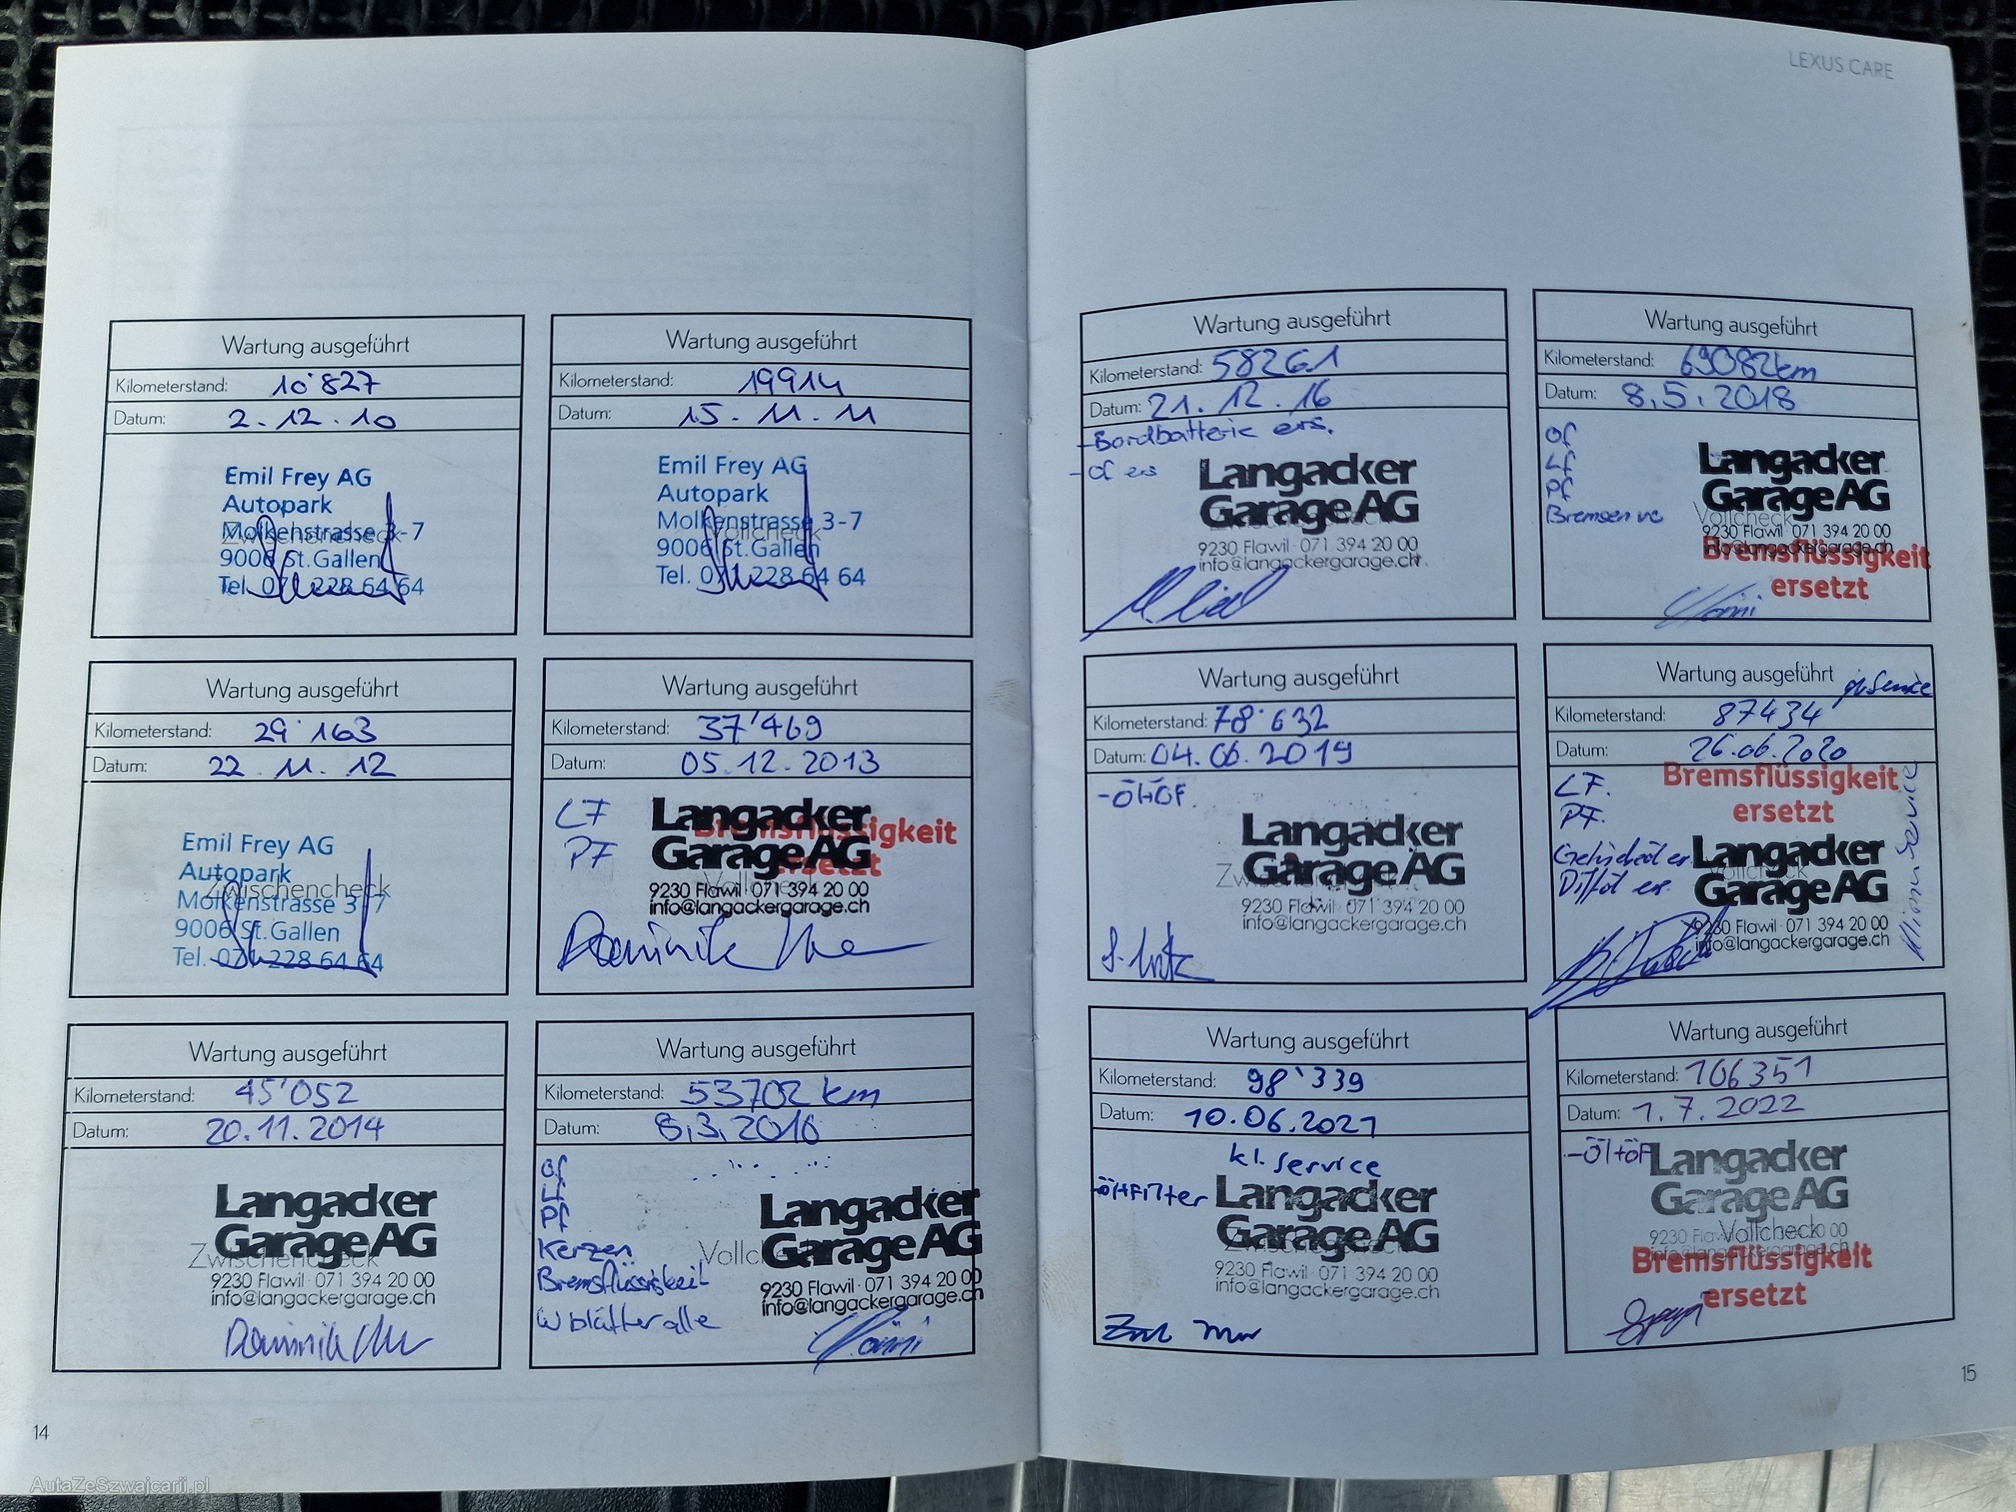 LEXUS CARE
Wartung ausgeführt
Kilometerstand: 10'827
Datum: 2.12.10
Emil Frey AG
Autopark
Molkenstrasse 3-7
Zwischencheck
9006 St.Gallen
Tel. 071 228 64 64
Wartung ausgeführt
Kilometerstand: 19914
Datum: 15.11.11
Emil Frey AG
Autopark
Molkenstrasse 3-7
Vollcheck
9006 St.Gallen
Tel. 071 228 64 64
Wartung ausgeführt
Kilometerstand: 29'163
Datum: 22.11.12
Emil Frey AG
Autopark
Zwischencheck
Molkenstrasse 3-7
9006 St.Gallen
Tel. 071 228 64 64
Wartung ausgeführt
Kilometerstand: 37'469
Datum: 05.12.2013
LF
PF
Langacker
Garage AG
Bremsflüssigkeit
ersetzt
Vollcheck
9230 Flawil · 071 394 20 00
info@langackergarage.ch
Dominik
Wartung ausgeführt
Kilometerstand: 45'052
Datum: 20.11.2014
Langacker
Garage AG
Zwischencheck
9230 Flawil · 071 394 20 00
info@langackergarage.ch
Dominik
Wartung ausgeführt
Kilometerstand: 53702 km
Datum: 8.3.2016
of
Lf
Pf
Kerzen
Bremsflüssigkeit
W blätter alle
Vollcheck
Langacker
Garage AG
9230 Flawil · 071 394 20 00
info@langackergarage.ch
14
Wartung ausgeführt
Kilometerstand: 58261
Datum: 21.12.16
-Bordbatterie ers.
- of ers
Langacker
Garage AG
9230 Flawil · 071 394 20 00
info@langackergarage.ch
Wartung ausgeführt
Kilometerstand: 69082km
Datum: 8.5.2018
of
Lf
Pf
Bremsen
Langacker
Garage AG
Vollcheck
9230 Flawil · 071 394 20 00
info@langackergarage.ch
Bremsflüssigkeit
ersetzt
Wartung ausgeführt
Kilometerstand: 78'632
Datum: 04.06.2019
-Öl+ÖF.
Langacker
Garage AG
9230 Flawil · 071 394 20 00
info@langackergarage.ch
Wartung ausgeführt
gr. Service
Kilometerstand: 87434
Datum: 26.06.2020
Bremsflüssigkeit
ersetzt
LF.
PF.
Langacker
Garage AG
Vollcheck
9230 Flawil · 071 394 20 00
info@langackergarage.ch
Wartung ausgeführt
Kilometerstand: 98'339
Datum: 10.06.2021
kl. Service
-Öl+Filter
Langacker
Garage AG
Zwischencheck
9230 Flawil · 071 394 20 00
info@langackergarage.ch
Wartung ausgeführt
Kilometerstand: 106351
Datum: 1.7.2022
-Öl+ÖF
Langacker
Garage AG
Vollcheck
Bremsflüssigkeit
ersetzt
15
AutaZeSzwajcarii.pl